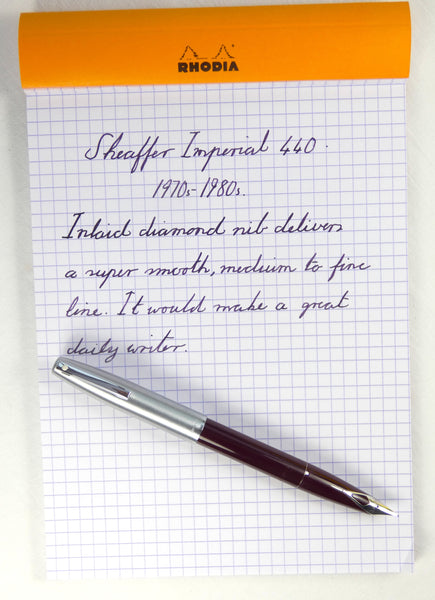 RHODIA
Sheaffer Imperial 440.
1970s-1980s.
Inlaid diamond nib delivers
a super smooth, medium to fine
line. It would make a great
daily writer.